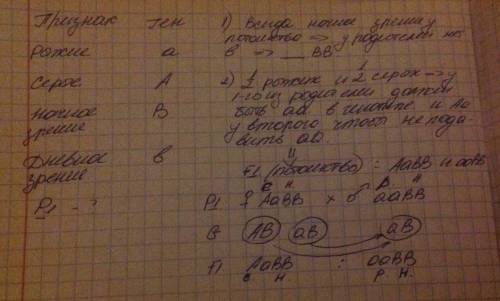 Признак ген
Рыжие а
Серые А
Ночное зрение В
Дневное зрение в
Р1 - ?
1) Всегда ночное зрение у
потомство => у родителей нет
в => __ BB
2) 1/2 рыжих и 1/2 серых => у
1-го из родителей должно
быть аа в генотипе и Аа
у второго чтобы не пода-
вить аа.
F1 (потомство) : АаВВ и ааВВ
С Н Р Н
Р1 ♀ АаВВ x ♂ ааВВ
G АВ аВ аВ
F1 АаВВ : ааВВ
С Н Р. Н.